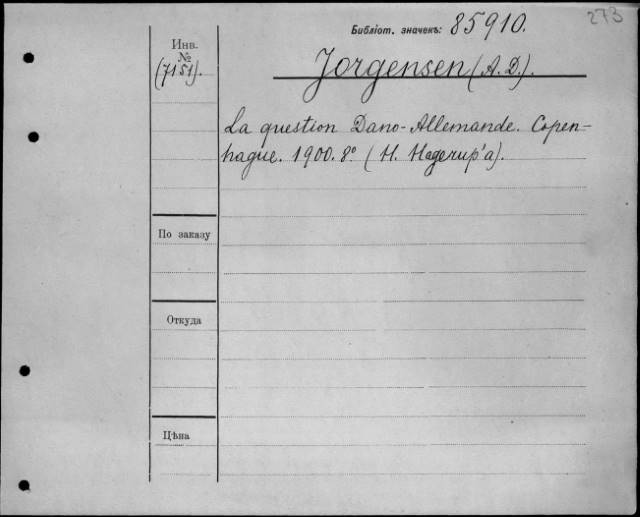 273
Библіот. значекъ: 85910.
Инв.
№
(7151).
Jorgensen (A. D.).
La question Dano-Allemande. Copen-
hague. 1900. 8º (H. Hagerup'a).
По заказу
Откуда
Цѣна